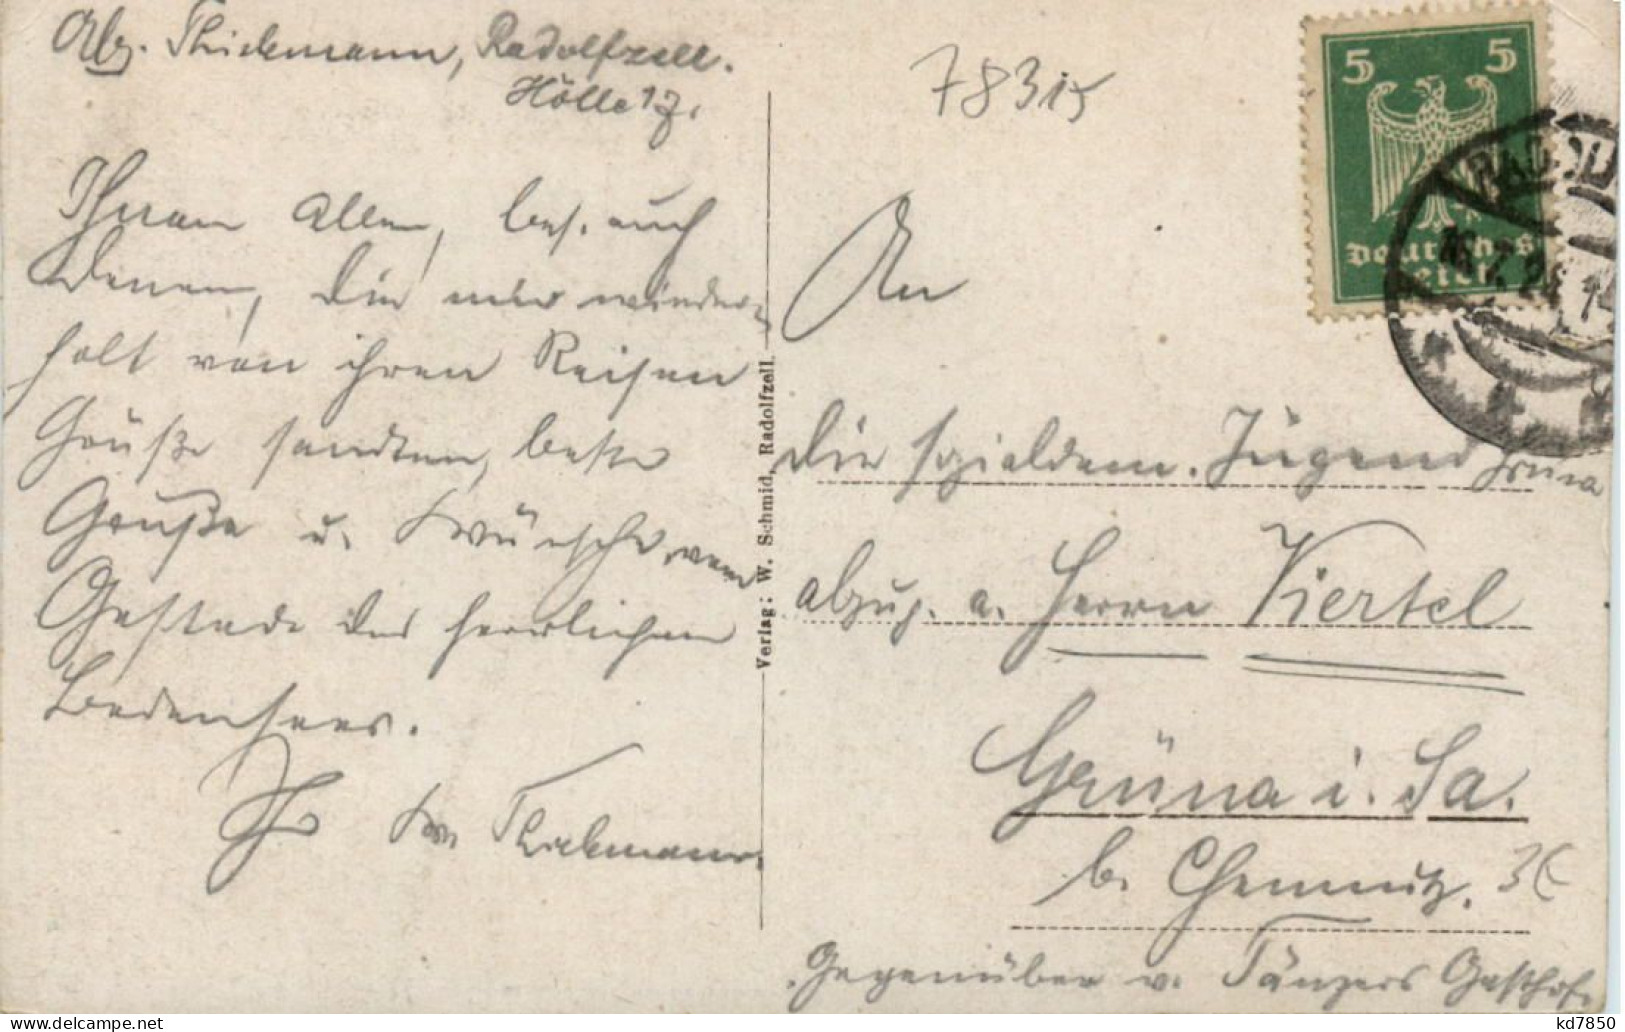 Abs. Thiekmann, Radolfzell.
Hölle 17.
Ihnen Allen, bes. auch
Denen, die mir wieder-
holt von ihren Reisen
Grüße sandten, beste
Grüße u. Wünsche vom
Gestade des herrlichen
Bodensees.
Ihr Thiekmann.
Verlag: W. Schmid, Radolfzell.
78315
5 5
Deutsches
Reich
An
die sozialdem. Jugend Grüna
abzug. a. Herrn Viertel
Grüna i. Sa.
b. Chemnitz.
Gegenüber v. Tänzers Gasthof.
kd7850